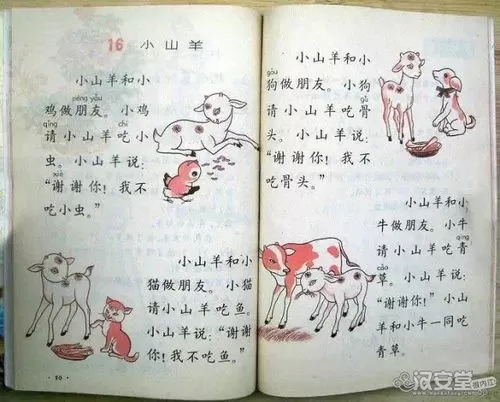 16 小山羊
小山羊和小
péng yǒu
鸡做朋友。小鸡
qǐng chī
请小山羊吃小
虫。小山羊说:
xiè
“谢谢你!我不
吃小虫。”
小山羊和小
猫做朋友。小猫
请小山羊吃鱼。
小山羊说:“谢谢
你!我不吃鱼。”
小山羊和小
gǒu
狗做朋友。小狗
gǔ
请小山羊吃骨
头。小山羊说:
“谢谢你!我不
吃骨头。”
小山羊和小
牛做朋友。小牛
qīng
请小山羊吃青
cǎo
草。小山羊说:
“谢谢你!”小山
羊和小牛一同吃
青草。
汉安堂